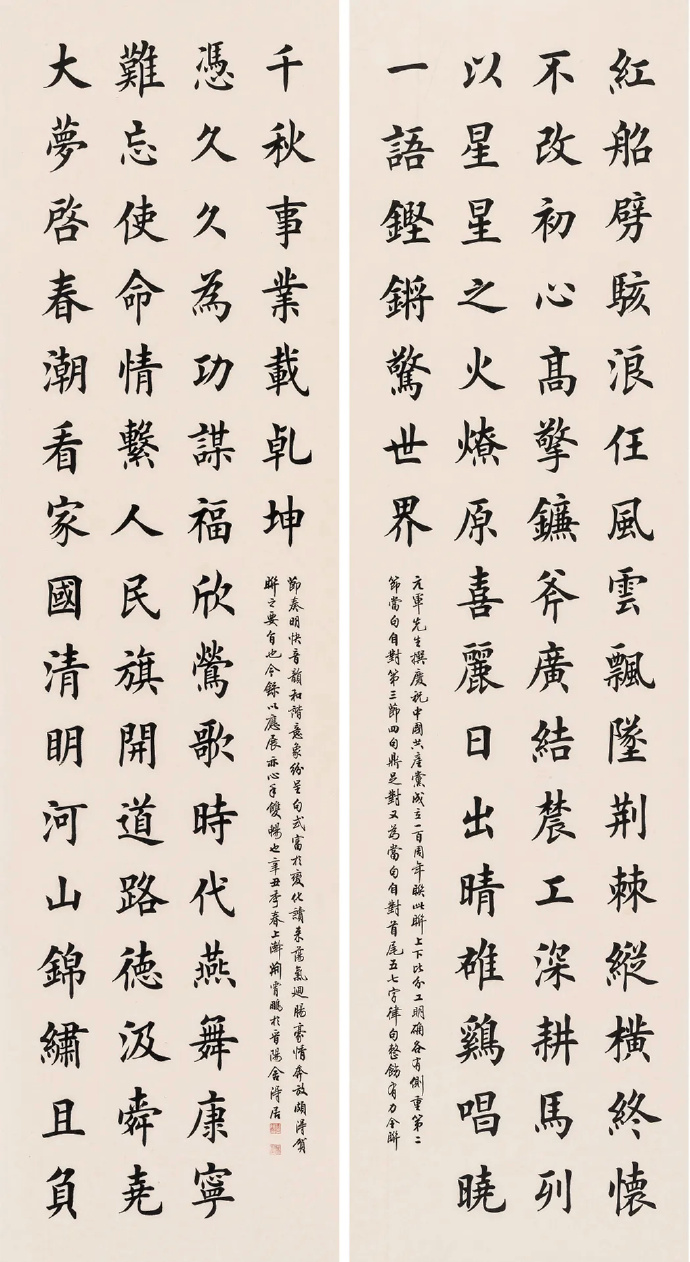 紅船劈駭浪任風雲飄墜荊棘縱橫終懷
不改初心髙擎鐮斧廣結農工深耕馬列
以星星之火燎原喜麗日出晴雄鷄唱曉
一語鏗鏘驚世界
元軍先生撰慶祝中國共產黨成立一百周年聯此聯上下比分工明確各有側重第二
節當句自對第三節四句鼎足對又為當句自對首尾五七字律句整飭有力全聯
大夢啓春潮看家國清明河山錦繡且負
難忘使命情繫人民旗開道路德汲舜堯
憑久久為功謀福欣鶯歌時代燕舞康寧
千秋事業載乾坤
節奏明快音韻和諧意象紛呈句式富於變化讀來蕩氣迴腸豪情奔放頗得賀
聯之要旨也今錄以應展亦心手雙暢也辛丑季春上澣荊霄鵬於晉陽舍得居